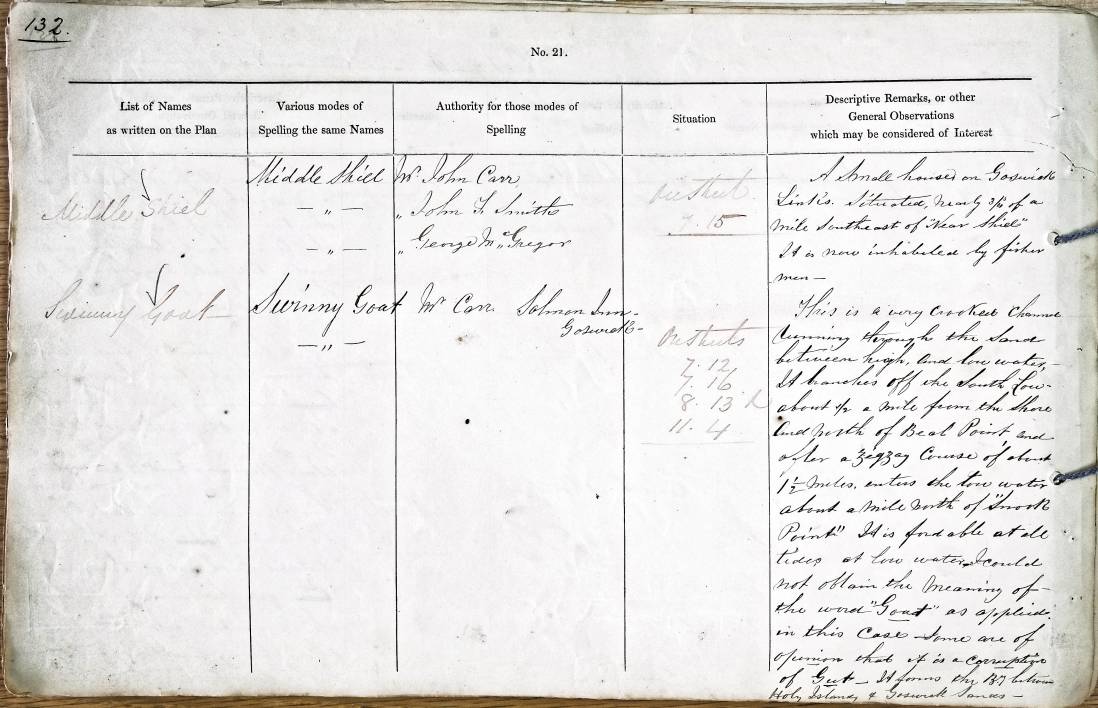 132.
No. 21.
List of Names
as written on the Plan
Various modes of
Spelling the same Names
Authority for those modes of
Spelling
Situation
Descriptive Remarks, or other
General Observations
which may be considered of Interest
Middle Shiel
Middle Shiel
— " —
— " —
Mr. John Carr
" John F. Smith
" George McGregor
On Sheet
7. 15
A Small house on Goswick
Links. Situated, nearly 3/4 of a
mile Southeast of "Near Shiel"
It is now inhabited by fisher
men —
Swinny Goat
Swinny Goat
— " —
Mr Carr Salmon Inn-
Goswick-
On Sheets
7. 12
7. 16
8. 13
11. 4
This is a very crooked Channel
running through the Sand
between high, and low water,-
It branches off the South Low-
about 1/2 a mile from the Shore
and north of Beal Point, and
after a zigzag Course of about
1½ Miles, enters the low water
about a mile north of "Snook
Point" It is fordable at all
tides at low water I could
not obtain the Meaning of
the word "Goat" as applied
in this Case — Some are of
opinion that it is a corruption
of Gut — It forms the By between
Holy Island & Goswick Sands —